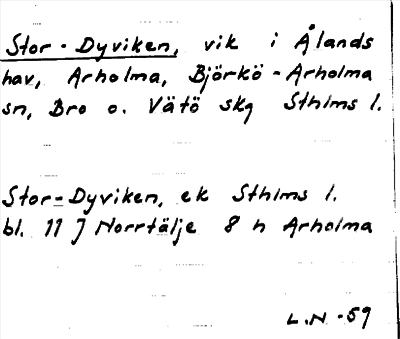 Stor-Dyviken, vik i Ålands
hav, Arholma, Björkö-Arholma
sn, Bro o. Vätö skg Sthlms l.
Stor-Dyviken, ek Sthlms l.
bl. 11 J Norrtälje 8 h Arholma
L.N -59